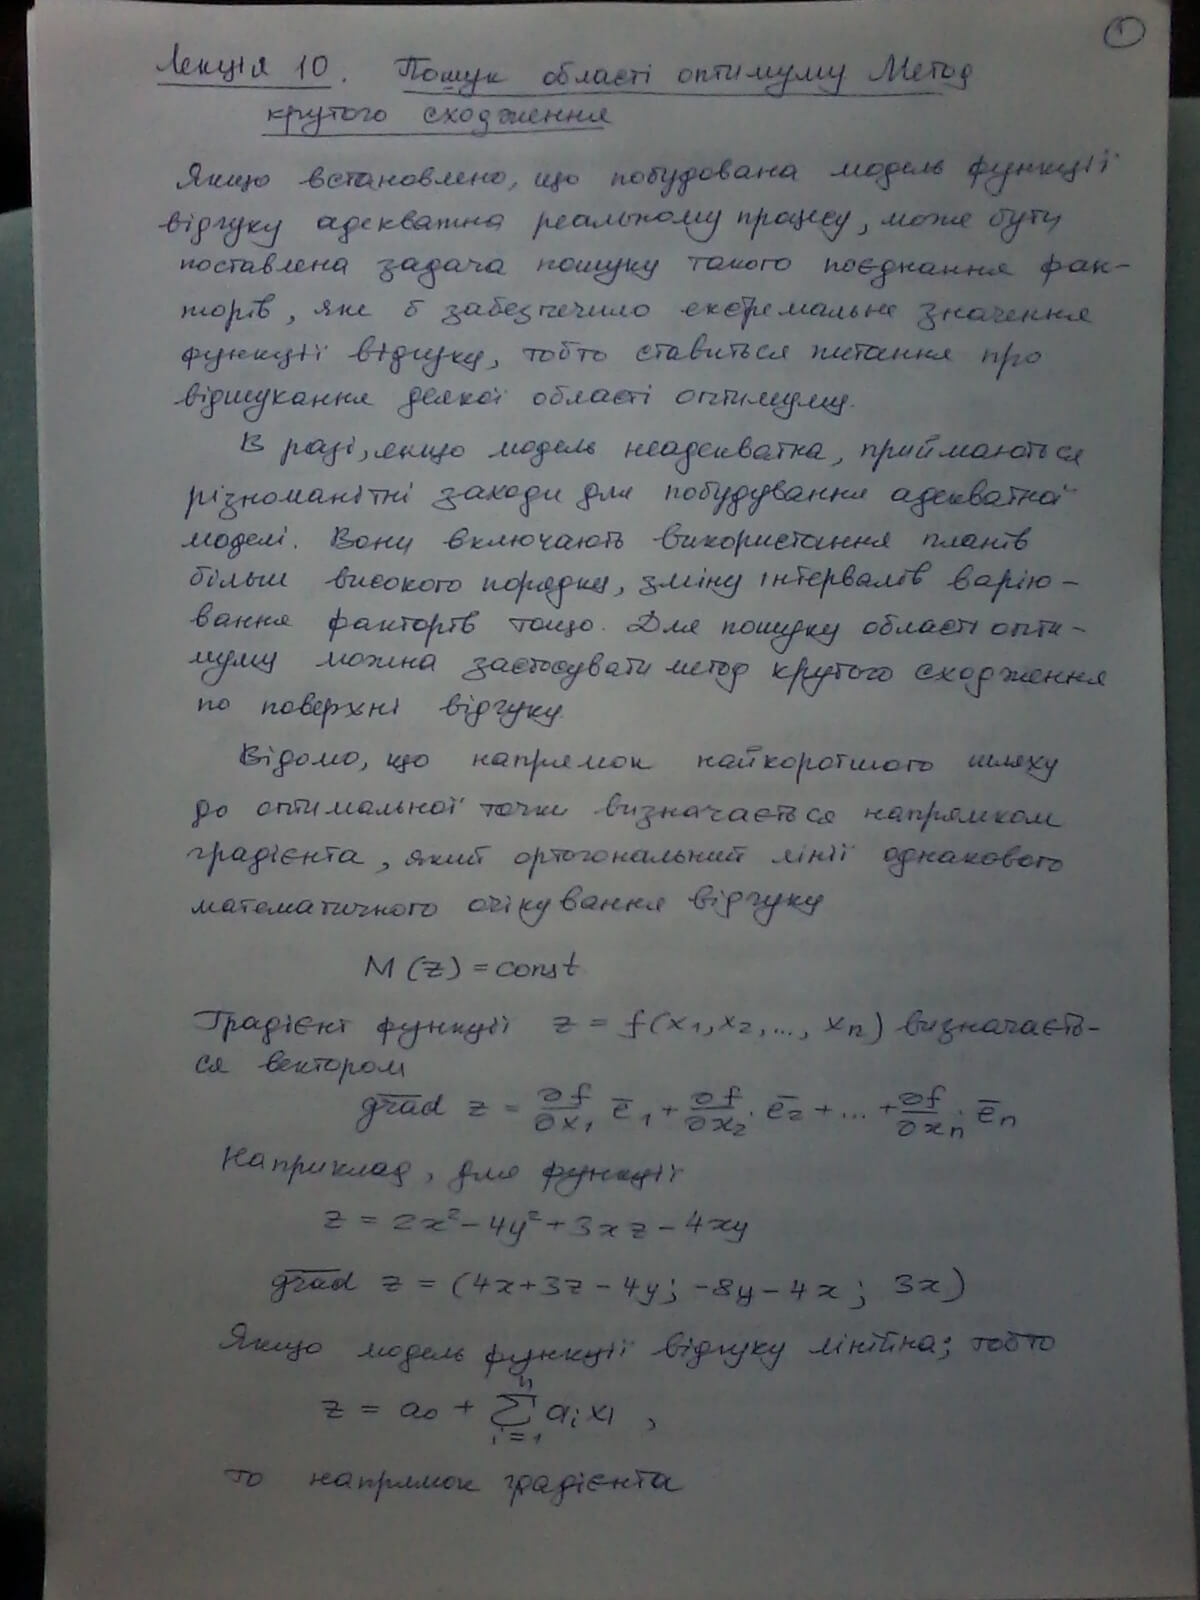 1
Лекція 10. Пошук області оптимуму Метод
крутого сходження
Якщо встановлено, що побудована модель функції
відгуку адекватна реальному процесу, може бути
поставлена задача пошуку такого поєднання фак-
торів, яке б забезпечило екстремальне значення
функції відгуку, тобто ставиться питання про
відшукання деякої області оптимуму.
В разі, якщо модель неадекватна, приймаються
різноманітні заходи для побудування адекватної
моделі. Вони включають використання планів
більш високого порядку, зміну інтервалів варію-
вання факторів тощо. Для пошуку області опти-
муму можна застосувати метод крутого сходження
по поверхні відгуку.
Відомо, що напрямок найкоротшого шляху
до оптимальної точки визначається напрямком
градієнта, який ортогональний лінії однакового
математичного очікування відгуку
M(z) = const
Градієнт функції z = f(x₁, x₂, ..., xₙ) визначаєть-
ся вектором
grad z = ∂f/∂x₁ ē₁ + ∂f/∂x₂ · ē₂ + ... + ∂f/∂xₙ · ēₙ
Наприклад, для функції
z = 2x² - 4y² + 3xz - 4xy
grad z = (4x + 3z - 4y; -8y - 4x; 3x)
Якщо модель функції відгуку лінійна; тобто
z = a₀ + Σⁿᵢ₌₁ aᵢxᵢ ,
то напрямок градієнта